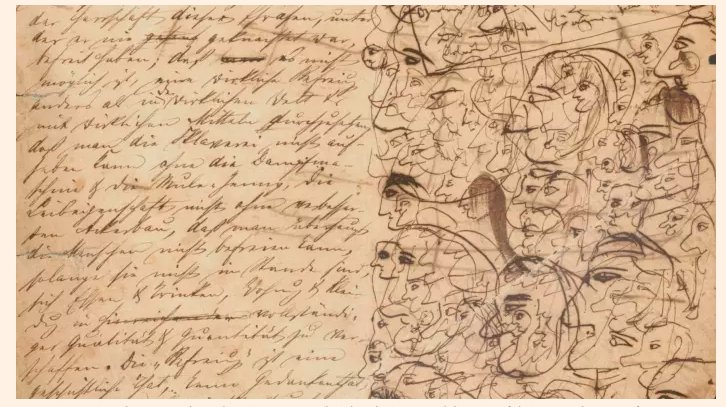 der Herrschaft dieser Phrasen, unter
der er nie geknechtet war,
befreit haben; daß es nicht
möglich ist, eine wirkliche Befreiung
anders als in der wirklichen Welt &
mit wirklichen Mitteln durchzusetzen,
daß man die Sklaverei nicht auf-
heben kann ohne die Dampfma-
schine & die Mule-Jenny, die
Leibeigenschaft nicht ohne verbesser-
ten Ackerbau, daß man überhaupt
die Menschen nicht befreien kann,
solange sie nicht im Stande sind
sich Essen & Trinken, Wohng & Klei-
dg in vollständi-
ger Qualität & Quantität zu ver-
schaffen. Die „Befreiung" ist eine
geschichtliche That, keine Gedankenthat,